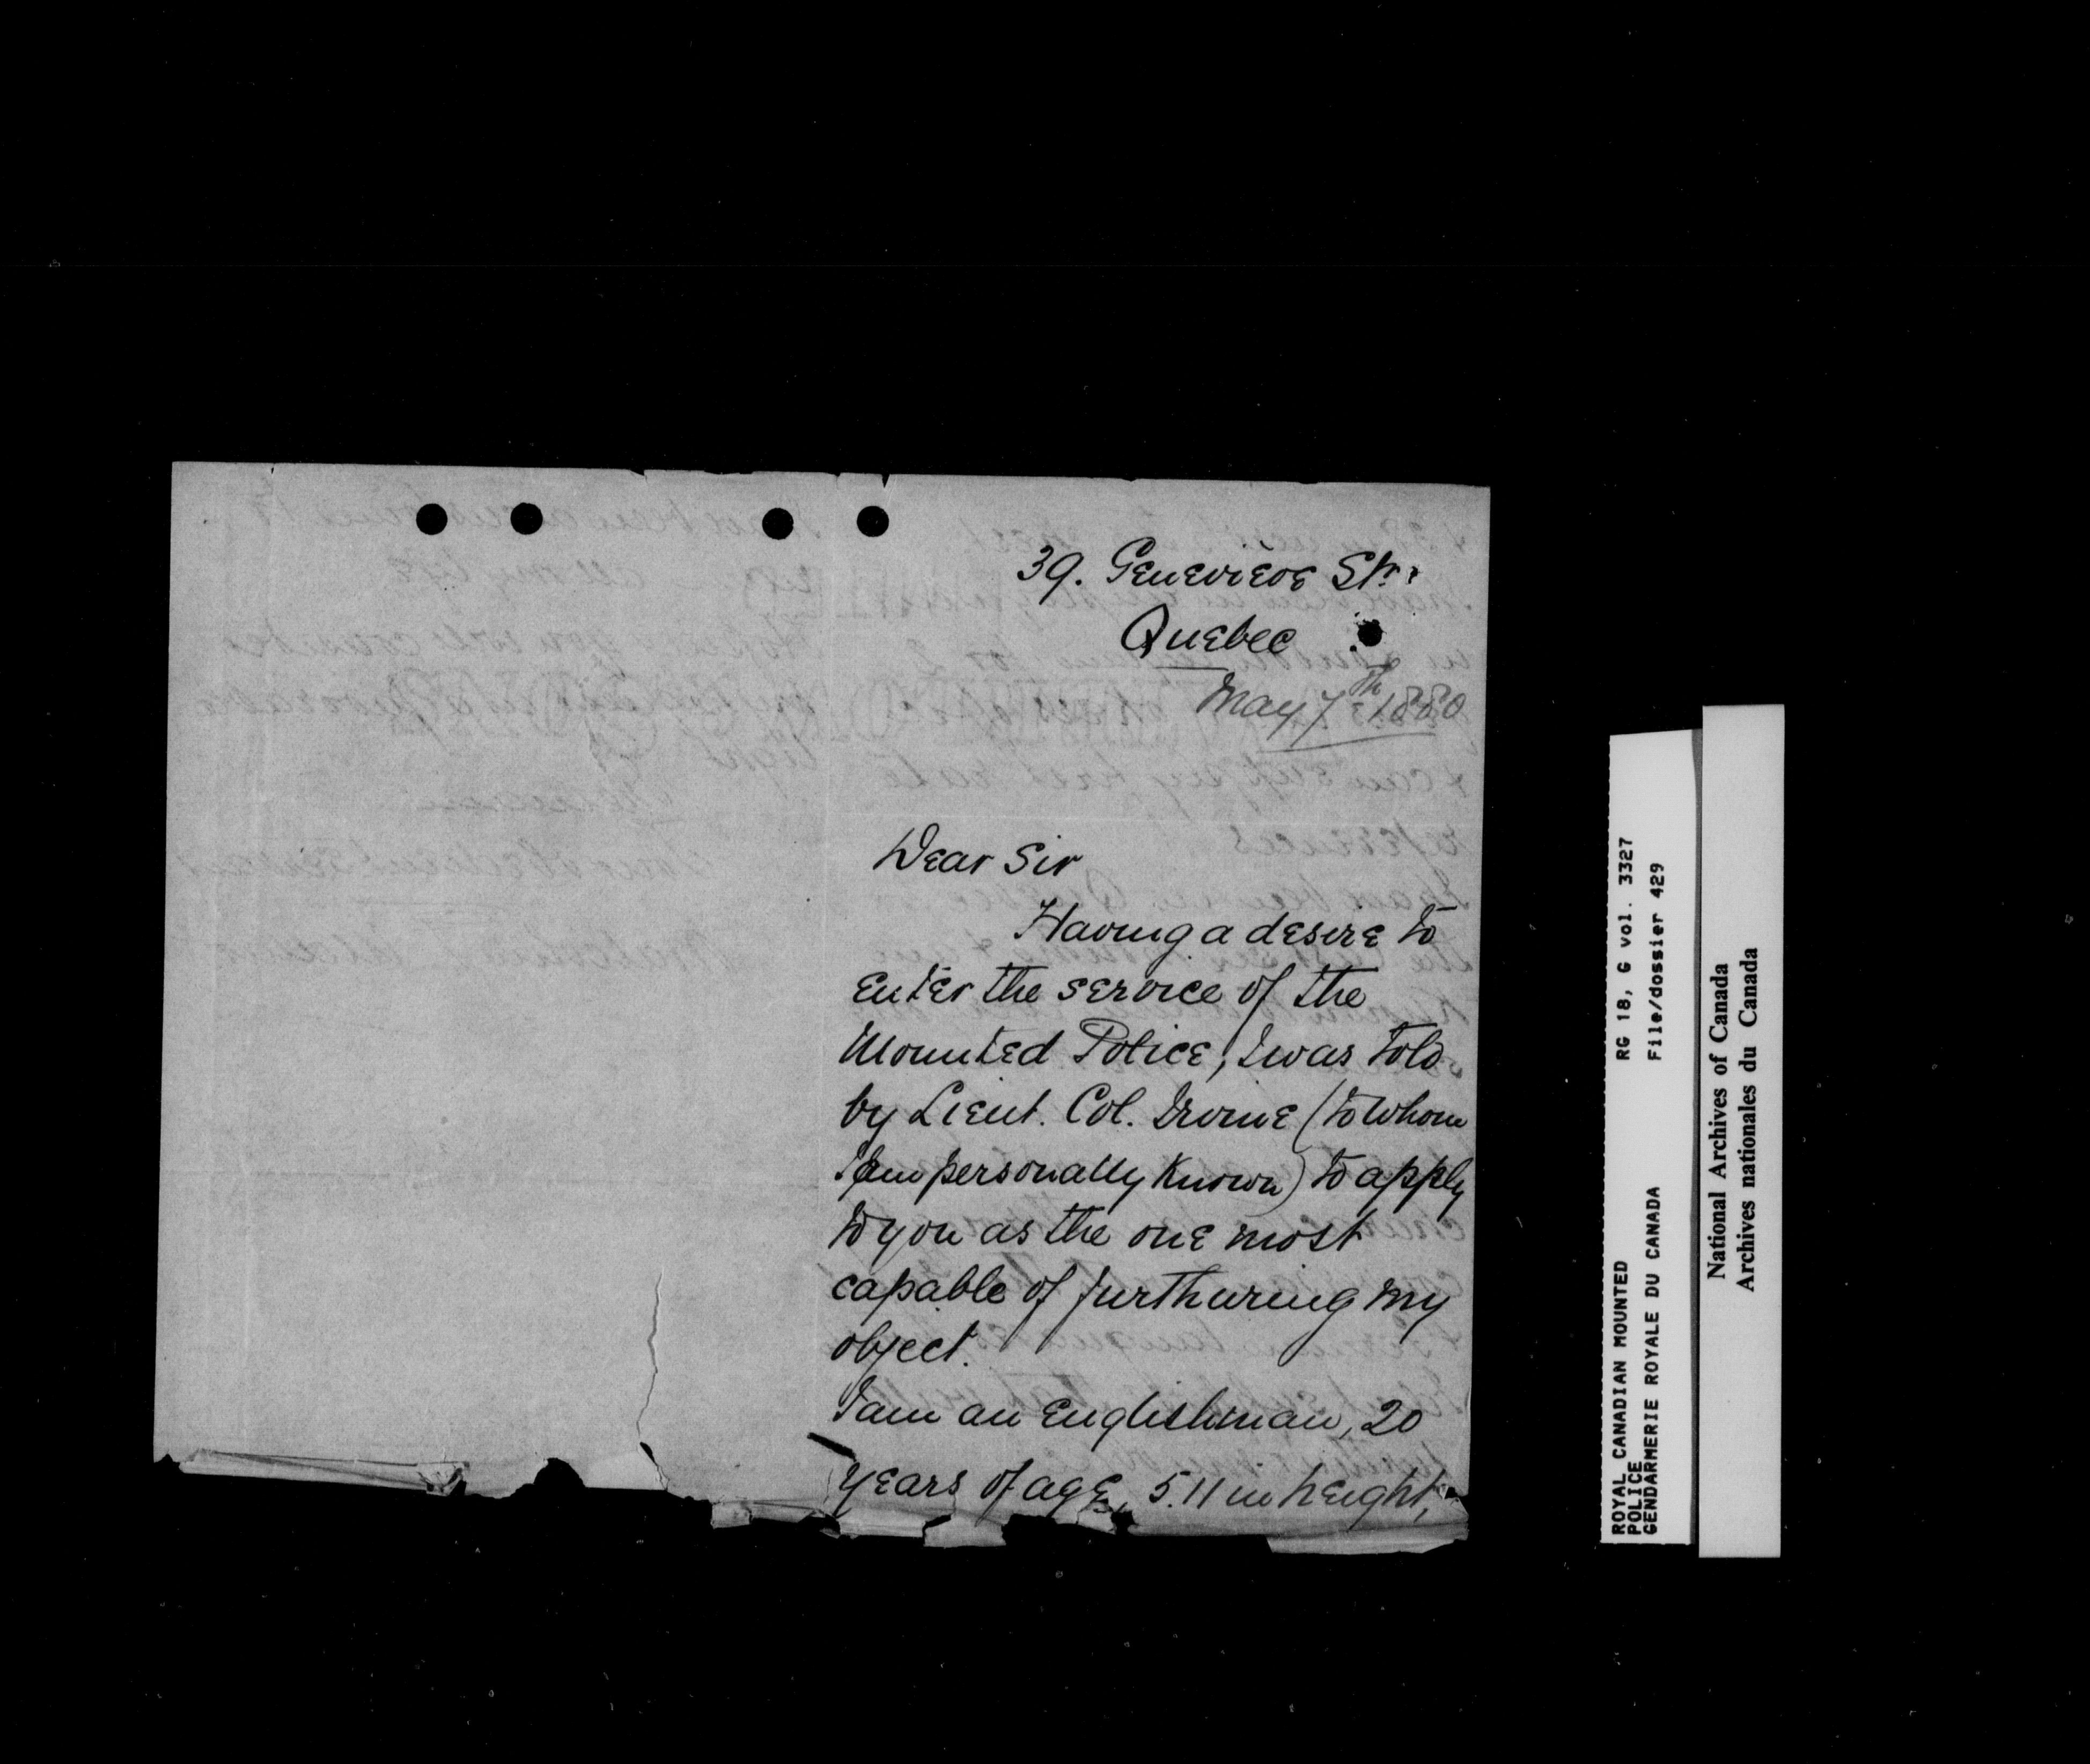 39. Genevieve Str.
Quebec
May 7th 1880
Dear Sir
Having a desire to
enter the service of the
Mounted Police, I was told
by Lieut. Col. Irvine (to whom
I am personally known) to apply
to you as the one most
capable of furthuring my
object.
I am an Englishman, 20
years of age, 5.11 in height,
ROYAL CANADIAN MOUNTED
POLICE
GENDARMERIE ROYALE DU CANADA
RG 18, G vol. 3327
File/dossier 429
National Archives of Canada
Archives nationales du Canada